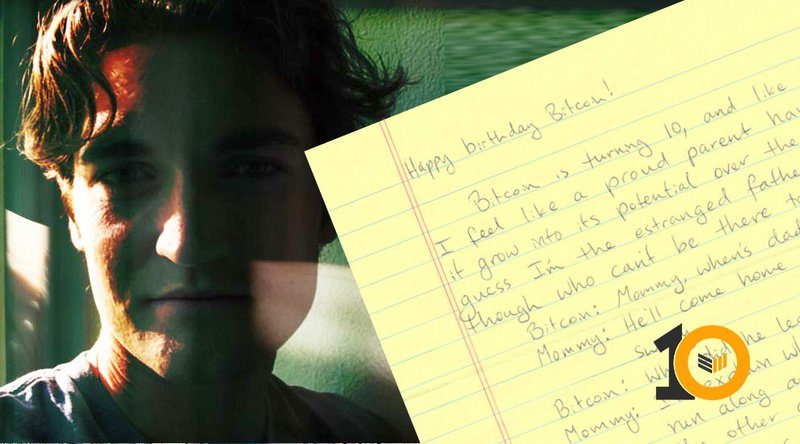 Happy birthday Bitcoin!
Bitcoin is turning 10, and like
I feel like a proud parent
it grow into its potential over the
guess I'm the estranged
though who can't be there
Bitcoin: Mommy, when's
Mommy: He'll come home
Bitcoin: did the
Mommy: explain
run along
other
10